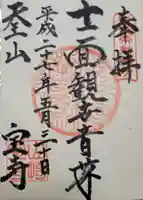 奉拝
十一面観世音菩薩
平成二十七年五月三十日
天王山
宝寺